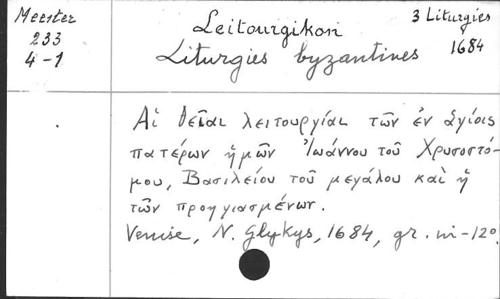 Meester
233
4-1
Leitourgikon
3 Liturgies
1684
Liturgies byzantines
Αἱ θεῖαι λειτουργίαι τῶν ἐν ἁγίοις
πατέρων ἡμῶν Ἰωάννου τοῦ Χρυσοστό-
μου, Βασιλείου τοῦ μεγάλου καὶ ἡ
τῶν προηγιασμένων.
Venise, N. Glykys, 1684, gr. in-12°